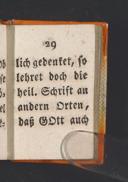 29
lich gedenket, so
lehret doch die
heil. Schrift an
andern Orten,
daß GOtt auch